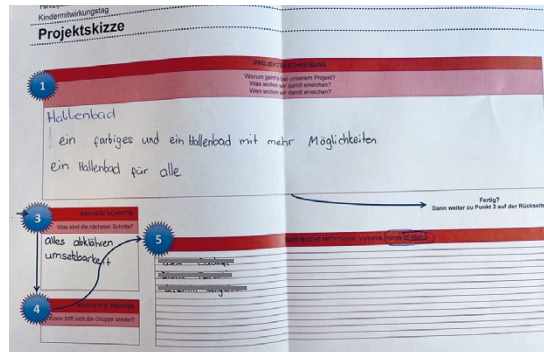 Kindermitwirkungstag
Projektskizze
PROJEKTBESCHREIBUNG
Worum geht's bei unserem Projekt?
Was wollen wir damit erreichen?
Wen wollen wir damit erreichen?
1
Hallenbad
ein farbiges und ein Hallenbad mit mehr Möglichkeiten
ein Hallenbad für alle
Fertig?
Dann weiter zu Punkt 2 auf der Rückseite
3
NÄCHSTE SCHRITTE
Was sind die nächsten Schritte?
alles abklären
umsetzbarkeit
5
WER MACHT MIT?
4
NÄCHSTES TREFFEN
Wann trifft sich die Gruppe wieder?